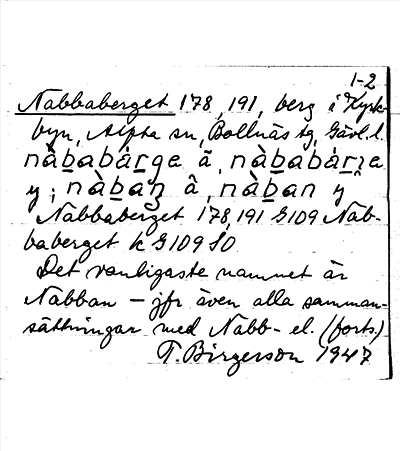 1-2
Nabbaberget 178, 191, berg i Kyrk-
byn, Alfta sn, Bollnäs tg, Gävl. l.
nàbabárge ã, nàbabárje
y; nàbaŋ â, nàban ŷ
Nabbaberget 178, 191 G109 Nab-
baberget k G109 SO.
Det vanligaste namnet är
Nabban – jfr även alla samman-
sättningar med Nabb- el. (forts.)
T. Birgerson 1947